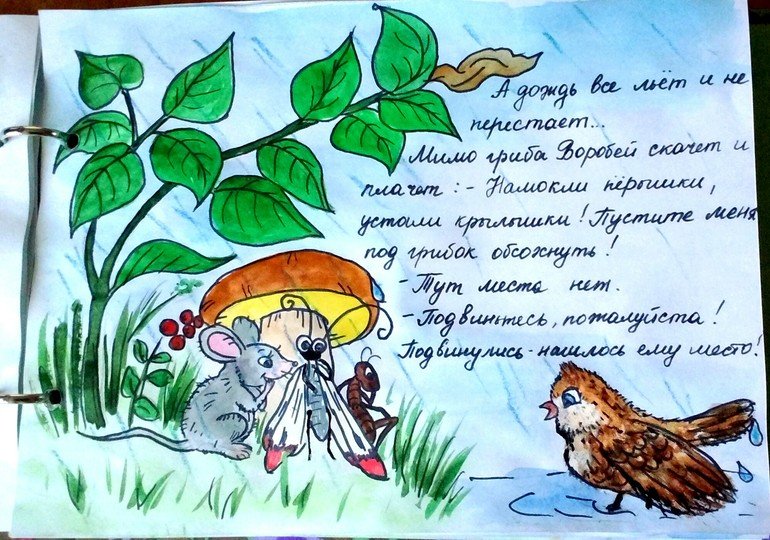 А дождь все льёт и не
перестает...
Мимо гриба Воробей скачет и
плачет: - Намокли пёрышки,
устали крылышки! Пустите меня
под грибок обсохнуть!
- Тут места нет.
- Подвиньтесь, пожалуйста!
Подвинулись - нашлось ему место!